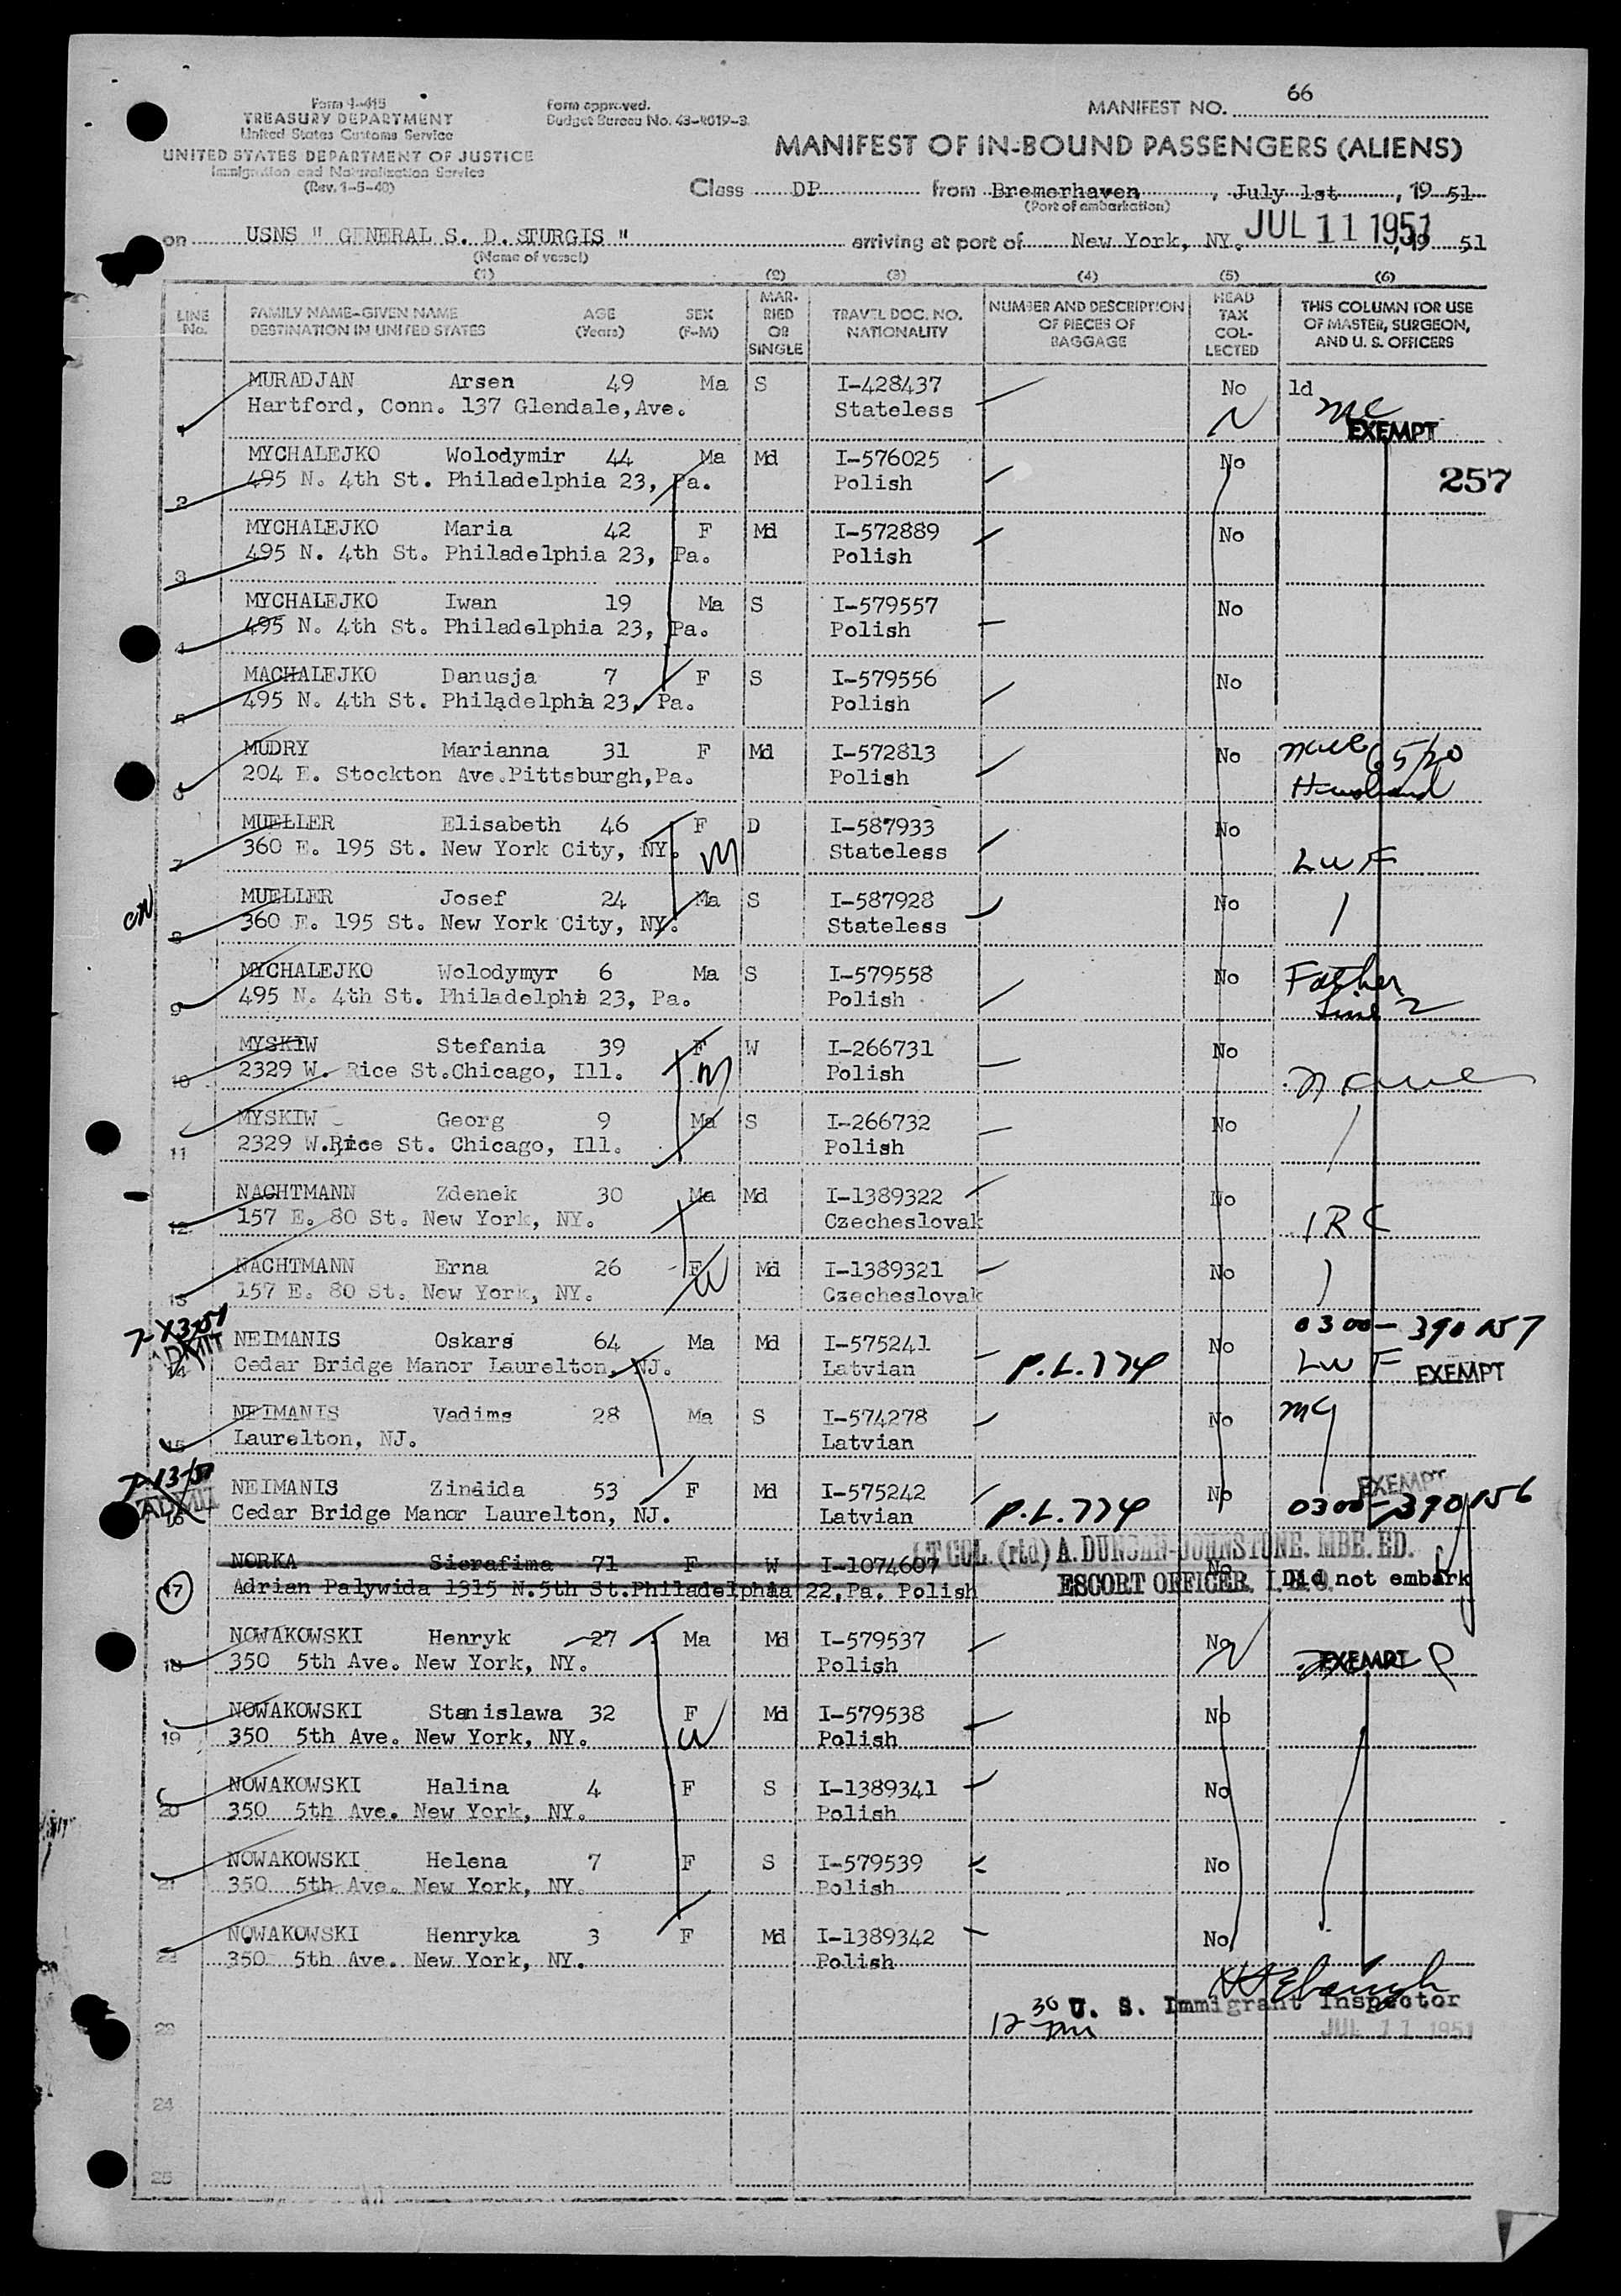 66
Form I-415
TREASURY DEPARTMENT
United States Customs Service
UNITED STATES DEPARTMENT OF JUSTICE
Immigration and Naturalization Service
Form approved.
Budget Bureau No. 43-R019-3.
MANIFEST NO.
MANIFEST OF IN-BOUND PASSENGERS (ALIENS)
Class DP from Bremerhaven, July 1st, 19 51
(Port of embarkation)
on USNS " GENERAL S. D. STURGIS " arriving at port of New York, NY. JUL 11 1951, 19 51
(Name of vessel)
(1) (2) (3) (4) (5) (6)
LINE No. FAMILY NAME-GIVEN NAME DESTINATION IN UNITED STATES AGE (Years) SEX (F-M) MARRIED OR SINGLE TRAVEL DOC. NO. NATIONALITY NUMBER AND DESCRIPTION OF PIECES OF BAGGAGE HEAD TAX COLLECTED THIS COLUMN FOR USE OF MASTER, SURGEON, AND U. S. OFFICERS
1 MURADJAN Arsen 49 Ma S I-428437 No 1d
Hartford, Conn. 137 Glendale,Ave. Stateless EXEMPT
2 MYCHALEJKO Wolodymir 44 Ma Md I-576025 No 257
495 N. 4th St. Philadelphia 23, Pa. Polish
3 MYCHALEJKO Maria 42 F Md I-572889 No
495 N. 4th St. Philadelphia 23, Pa. Polish
4 MYCHALEJKO Iwan 19 Ma S I-579557 No
495 N. 4th St. Philadelphia 23, Pa. Polish
5 MACHALEJKO Danusja 7 F S I-579556 No
495 N. 4th St. Philadelphia 23, Pa. Polish
6 MUDRY Marianna 31 F Md I-572813 No
204 E. Stockton Ave.Pittsburgh,Pa. Polish Husband
7 MUELLER Elisabeth 46 F D I-587933 No
360 E. 195 St. New York City, NY. Stateless LWF
8 MUELLER Josef 24 Ma S I-587928 No
360 E. 195 St. New York City, NY. Stateless
9 MYCHALEJKO Wolodymyr 6 Ma S I-579558 No Father
495 N. 4th St. Philadelphia 23, Pa. Polish Line 2
10 MYSKIW Stefania 39 F W I-266731 No
2329 W. Rice St.Chicago, Ill. Polish
11 MYSKIW Georg 9 Ma S I-266732 No
2329 W.Rice St. Chicago, Ill. Polish
12 NACHTMANN Zdenek 30 Ma Md I-1389322 No
157 E. 80 St. New York, NY. Czecheslovak IRC
13 NACHTMANN Erna 26 F Md I-1389321 No
157 E. 80 St. New York, NY. Czecheslovak
7-13-51 ADMIT
14 NEIMANIS Oskars 64 Ma Md I-575241 No 0300-390157
Cedar Bridge Manor Laurelton, NJ. Latvian P.L.774 LWF EXEMPT
15 NEIMANIS Vadims 28 Ma S I-574278 No
Laurelton, NJ. Latvian
7-13-51 ADMIT
16 NEIMANIS Zinaida 53 F Md I-575242 No EXEMPT
Cedar Bridge Manor Laurelton, NJ. Latvian P.L.774 0300-390156
17 NORKA Sierafima 71 F W I-1074607 No LT COL. (rtd) A. DUNCAN-JOHNSTONE. MBE. ED.
Adrian Palywida 1315 N.5th St.Philadelphia 22,Pa. Polish ESCORT OFFICER. Did not embark
18 NOWAKOWSKI Henryk 27 Ma Md I-579537 No
350 5th Ave. New York, NY. Polish EXEMPT
19 NOWAKOWSKI Stanislawa 32 F Md I-579538 No
350 5th Ave. New York, NY. Polish
20 NOWAKOWSKI Halina 4 F S I-1389341 No
350 5th Ave. New York, NY. Polish
21 NOWAKOWSKI Helena 7 F S I-579539 No
350 5th Ave. New York, NY. Polish
22 NOWAKOWSKI Henryka 3 F Md I-1389342 No
350 5th Ave. New York, NY. Polish
12 30 PM U. S. Immigrant Inspector
23 JUL 11 1951
24
25